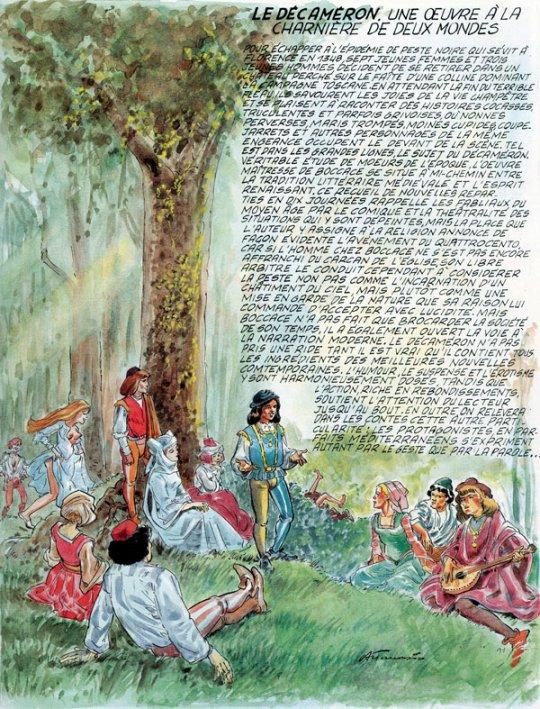 LE DÉCAMÉRON, UNE ŒUVRE À LA
CHARNIÈRE DE DEUX MONDES
POUR ÉCHAPPER À L'ÉPIDÉMIE DE PESTE NOIRE QUI SÉVIT À
FLORENCE EN 1348, SEPT JEUNES FEMMES ET TROIS
JEUNES HOMMES DÉCIDENT DE SE RETIRER DANS UN
CHÂTEAU PERCHÉ SUR LE FAÎTE D'UNE COLLINE DOMINANT
LA CAMPAGNE TOSCANE. EN ATTENDANT LA FIN DU TERRIBLE
FLÉAU, ILS SAVOURENT LES JOIES DE LA VIE CHAMPÊTRE
ET SE PLAISENT À RACONTER DES HISTOIRES COCASSES,
TRUCULENTES ET PARFOIS GRIVOISES, OÙ NONNES
PERVERSES, MARIS TROMPÉS, MOINES CUPIDES, COUPE-
JARRETS ET AUTRES PERSONNAGES DE LA MÊME
ENGEANCE OCCUPENT LE DEVANT DE LA SCÈNE. TEL
EST DANS LES GRANDES LIGNES, LE SUJET DU DÉCAMÉRON.
VÉRITABLE ÉTUDE DE MOEURS DE L'ÉPOQUE, L'OEUVRE
MAÎTRESSE DE BOCCACE SE SITUE À MI-CHEMIN ENTRE
LA TRADITION LITTÉRAIRE MÉDIÉVALE ET L'ESPRIT
RENAISSANT. CE RECUEIL DE NOUVELLES RÉPAR-
TIES EN DIX JOURNÉES RAPPELLE LES FABLIAUX DU
MOYEN ÂGE PAR LE COMIQUE ET LA THÉÂTRALITÉ DES
SITUATIONS QUI Y SONT DÉPEINTES, MAIS LA PLACE QUE
L'AUTEUR Y ASSIGNE À LA RELIGION ANNONCE DE
FAÇON ÉVIDENTE L'AVÈNEMENT DU QUATTROCENTO,
CAR SI L'HOMME CHEZ BOCCACE NE S'EST PAS ENCORE
AFFRANCHI DU CARCAN DE L'ÉGLISE, SON LIBRE
ARBITRE LE CONDUIT CEPENDANT À CONSIDÉRER
LA PESTE NON PAS COMME L'INCARNATION D'UN
CHÂTIMENT DU CIEL, MAIS PLUTÔT COMME UNE
MISE EN GARDE DE LA NATURE QUE SA RAISON LUI
COMMANDE D'ACCEPTER AVEC LUCIDITÉ. MAIS
BOCCACE N'A PAS FAIT QUE BROCARDER LA SOCIÉTÉ
DE SON TEMPS, IL A ÉGALEMENT OUVERT LA VOIE À
LA NARRATION MODERNE. LE DÉCAMÉRON N'A PAS
PRIS UNE RIDE TANT IL EST VRAI QU'IL CONTIENT TOUS
LES INGRÉDIENTS DES MEILLEURES NOUVELLES
CONTEMPORAINES. L'HUMOUR, LE SUSPENSE ET L'ÉROTISME
Y SONT HARMONIEUSEMENT DOSÉS, TANDIS QUE
L'ACTION, RICHE EN REBONDISSEMENTS,
SOUTIENT L'ATTENTION DU LECTEUR
JUSQU'AU BOUT. EN OUTRE, ON RELÈVERA
DANS LES CONTES CETTE AUTRE PARTI-
CULARITÉ: LES PROTAGONISTES EN PAR-
FAITS MÉDITERRANÉENS S'EXPRIMENT
AUTANT PAR LE GESTE QUE PAR LA PAROLE...